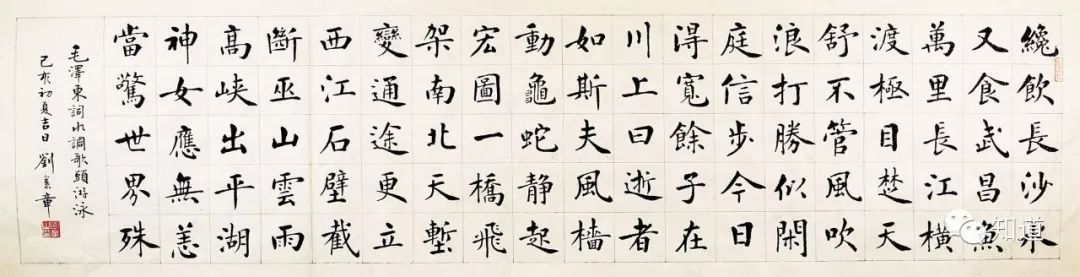 纔飲長沙水
又食武昌魚
萬里長江橫
渡極目楚天
舒不管風吹
浪打勝似閑
庭信步今日
得寬餘子在
川上曰逝者
如斯夫風檣
動龜蛇静起
宏圖一橋飛
架南北天塹
變通途更立
西江石壁截
斷巫山雲雨
高峽出平湖
神女應無恙
當驚世界殊
毛澤東詞水調歌頭游泳
己亥初夏吉日 劉章
知道